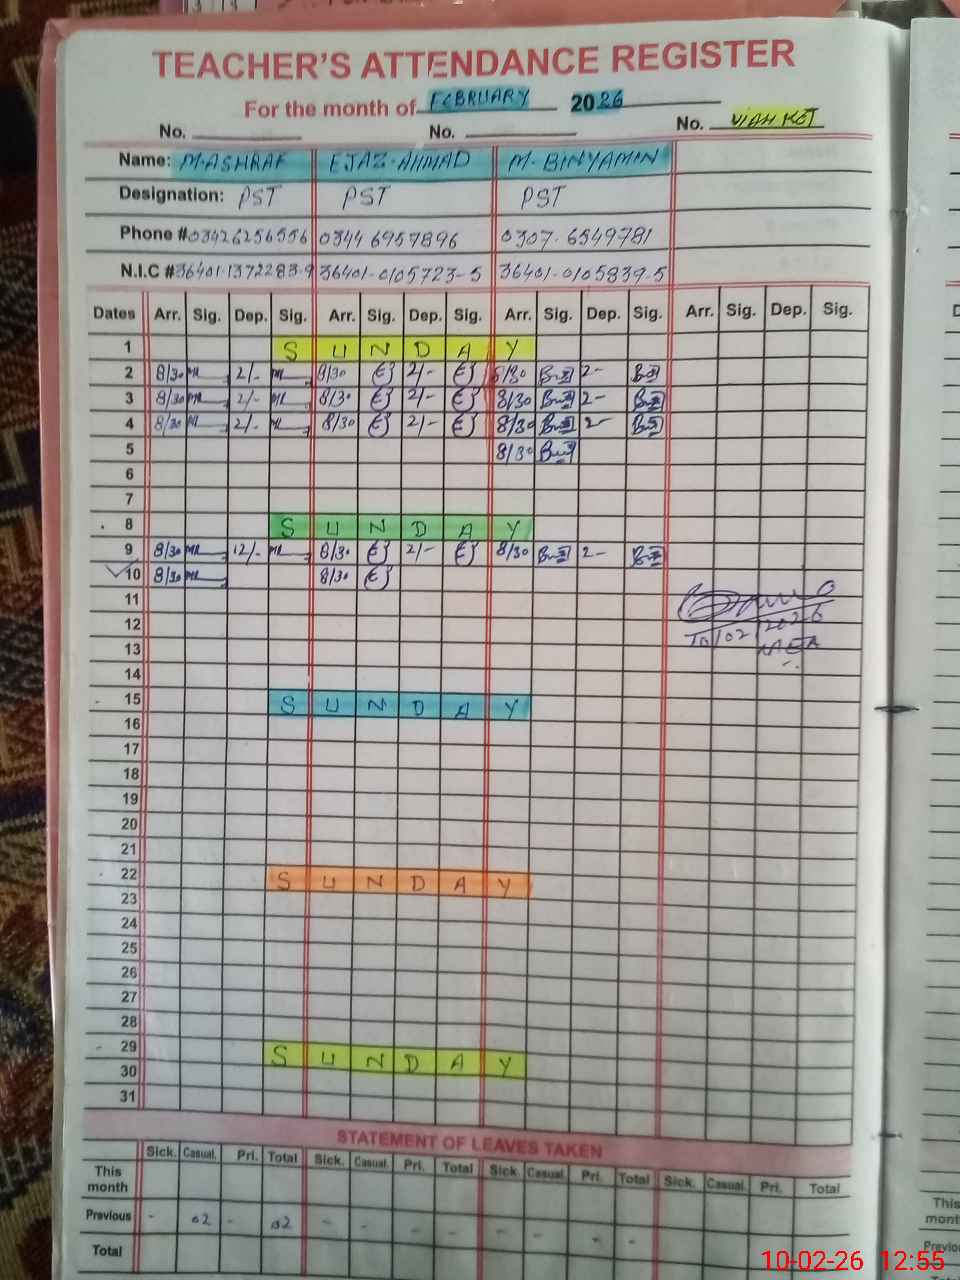 TEACHER'S ATTENDANCE REGISTER
For the month of FEBRUARY 2026
No. No. No. VIAH KOT
Name: M.ASHRAF EJAZ.AHMAD M.BINYAMIN
Designation: PST PST PST
Phone # 03426256556 0344 6957896 0307.6549781
N.I.C # 36401-1372283-9 36401-0105723-5 36401-0105839-5
Dates Arr. Sig. Dep. Sig. Arr. Sig. Dep. Sig. Arr. Sig. Dep. Sig. Arr. Sig. Dep. Sig.
1 S U N D A Y
2 8/30 2/- 8/30 2/- 8/30 2-
3 8/30 2/- 8/30 2/- 8/30 2-
4 8/30 2/- 8/30 2/- 8/30 2-
5 8/30
6
7
8 S U N D A Y
9 8/30 12/- 8/30 2/- 8/30 2-
10 8/30 8/30
11
12
10/02/2026
13
14
15 S U N D A Y
16
17
18
19
20
21
22 S U N D A Y
23
24
25
26
27
28
29 S U N D A Y
30
31
STATEMENT OF LEAVES TAKEN
Sick. Casual. Pri. Total Sick. Casual. Pri. Total Sick. Casual. Pri. Total Sick. Casual. Pri. Total
This month
Previous - 02 - 02 - - - - - - - -
Total
This
mont
Previo
10-02-26 12:55